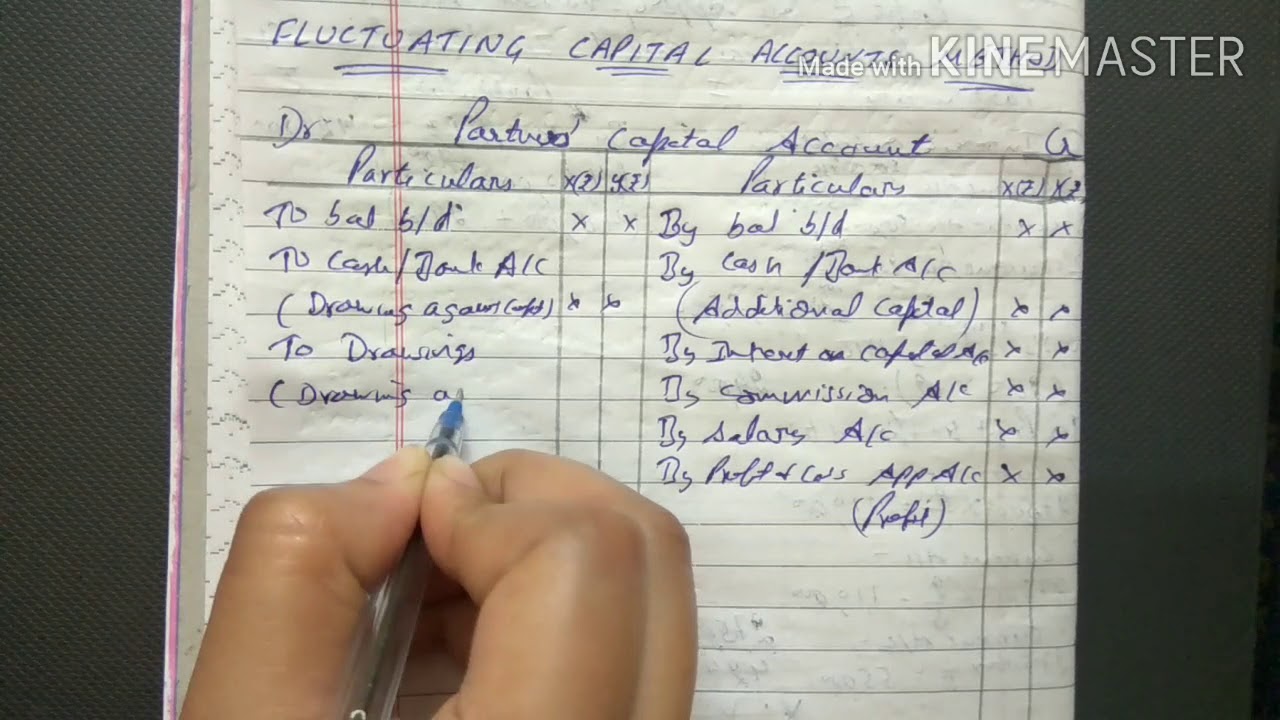 FLUCTUATING CAPITAL ACCOUNTS METHOD
Made with KINEMASTER
Dr Partners' Capital Account Cr
Particulars X(₹) Y(₹) Particulars X(₹) Y(₹
To bal b/d x x By bal b/d x x
To Cash/Bank A/c By Cash/Bank A/c
(Drawing against capital) x x (Additional Capital) x x
To Drawings By Interest on capital A/c x x
(Drawing a By Commission A/c x x
By Salary A/c x x
By Profit & Loss App A/c x x
(Profit)